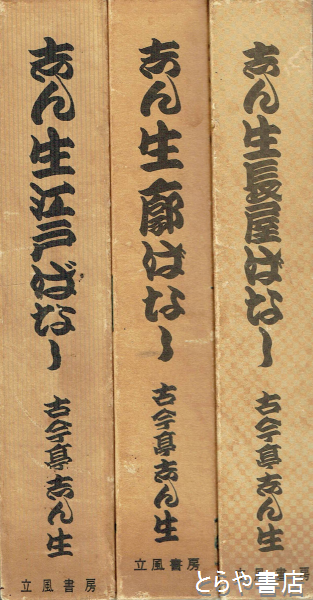 志ん生長屋ばなし
古今亭志ん生
立風書房
志ん生廓ばなし
古今亭志ん生
立風書房
志ん生江戸ばなし
古今亭志ん生
立風書房
とらや書店